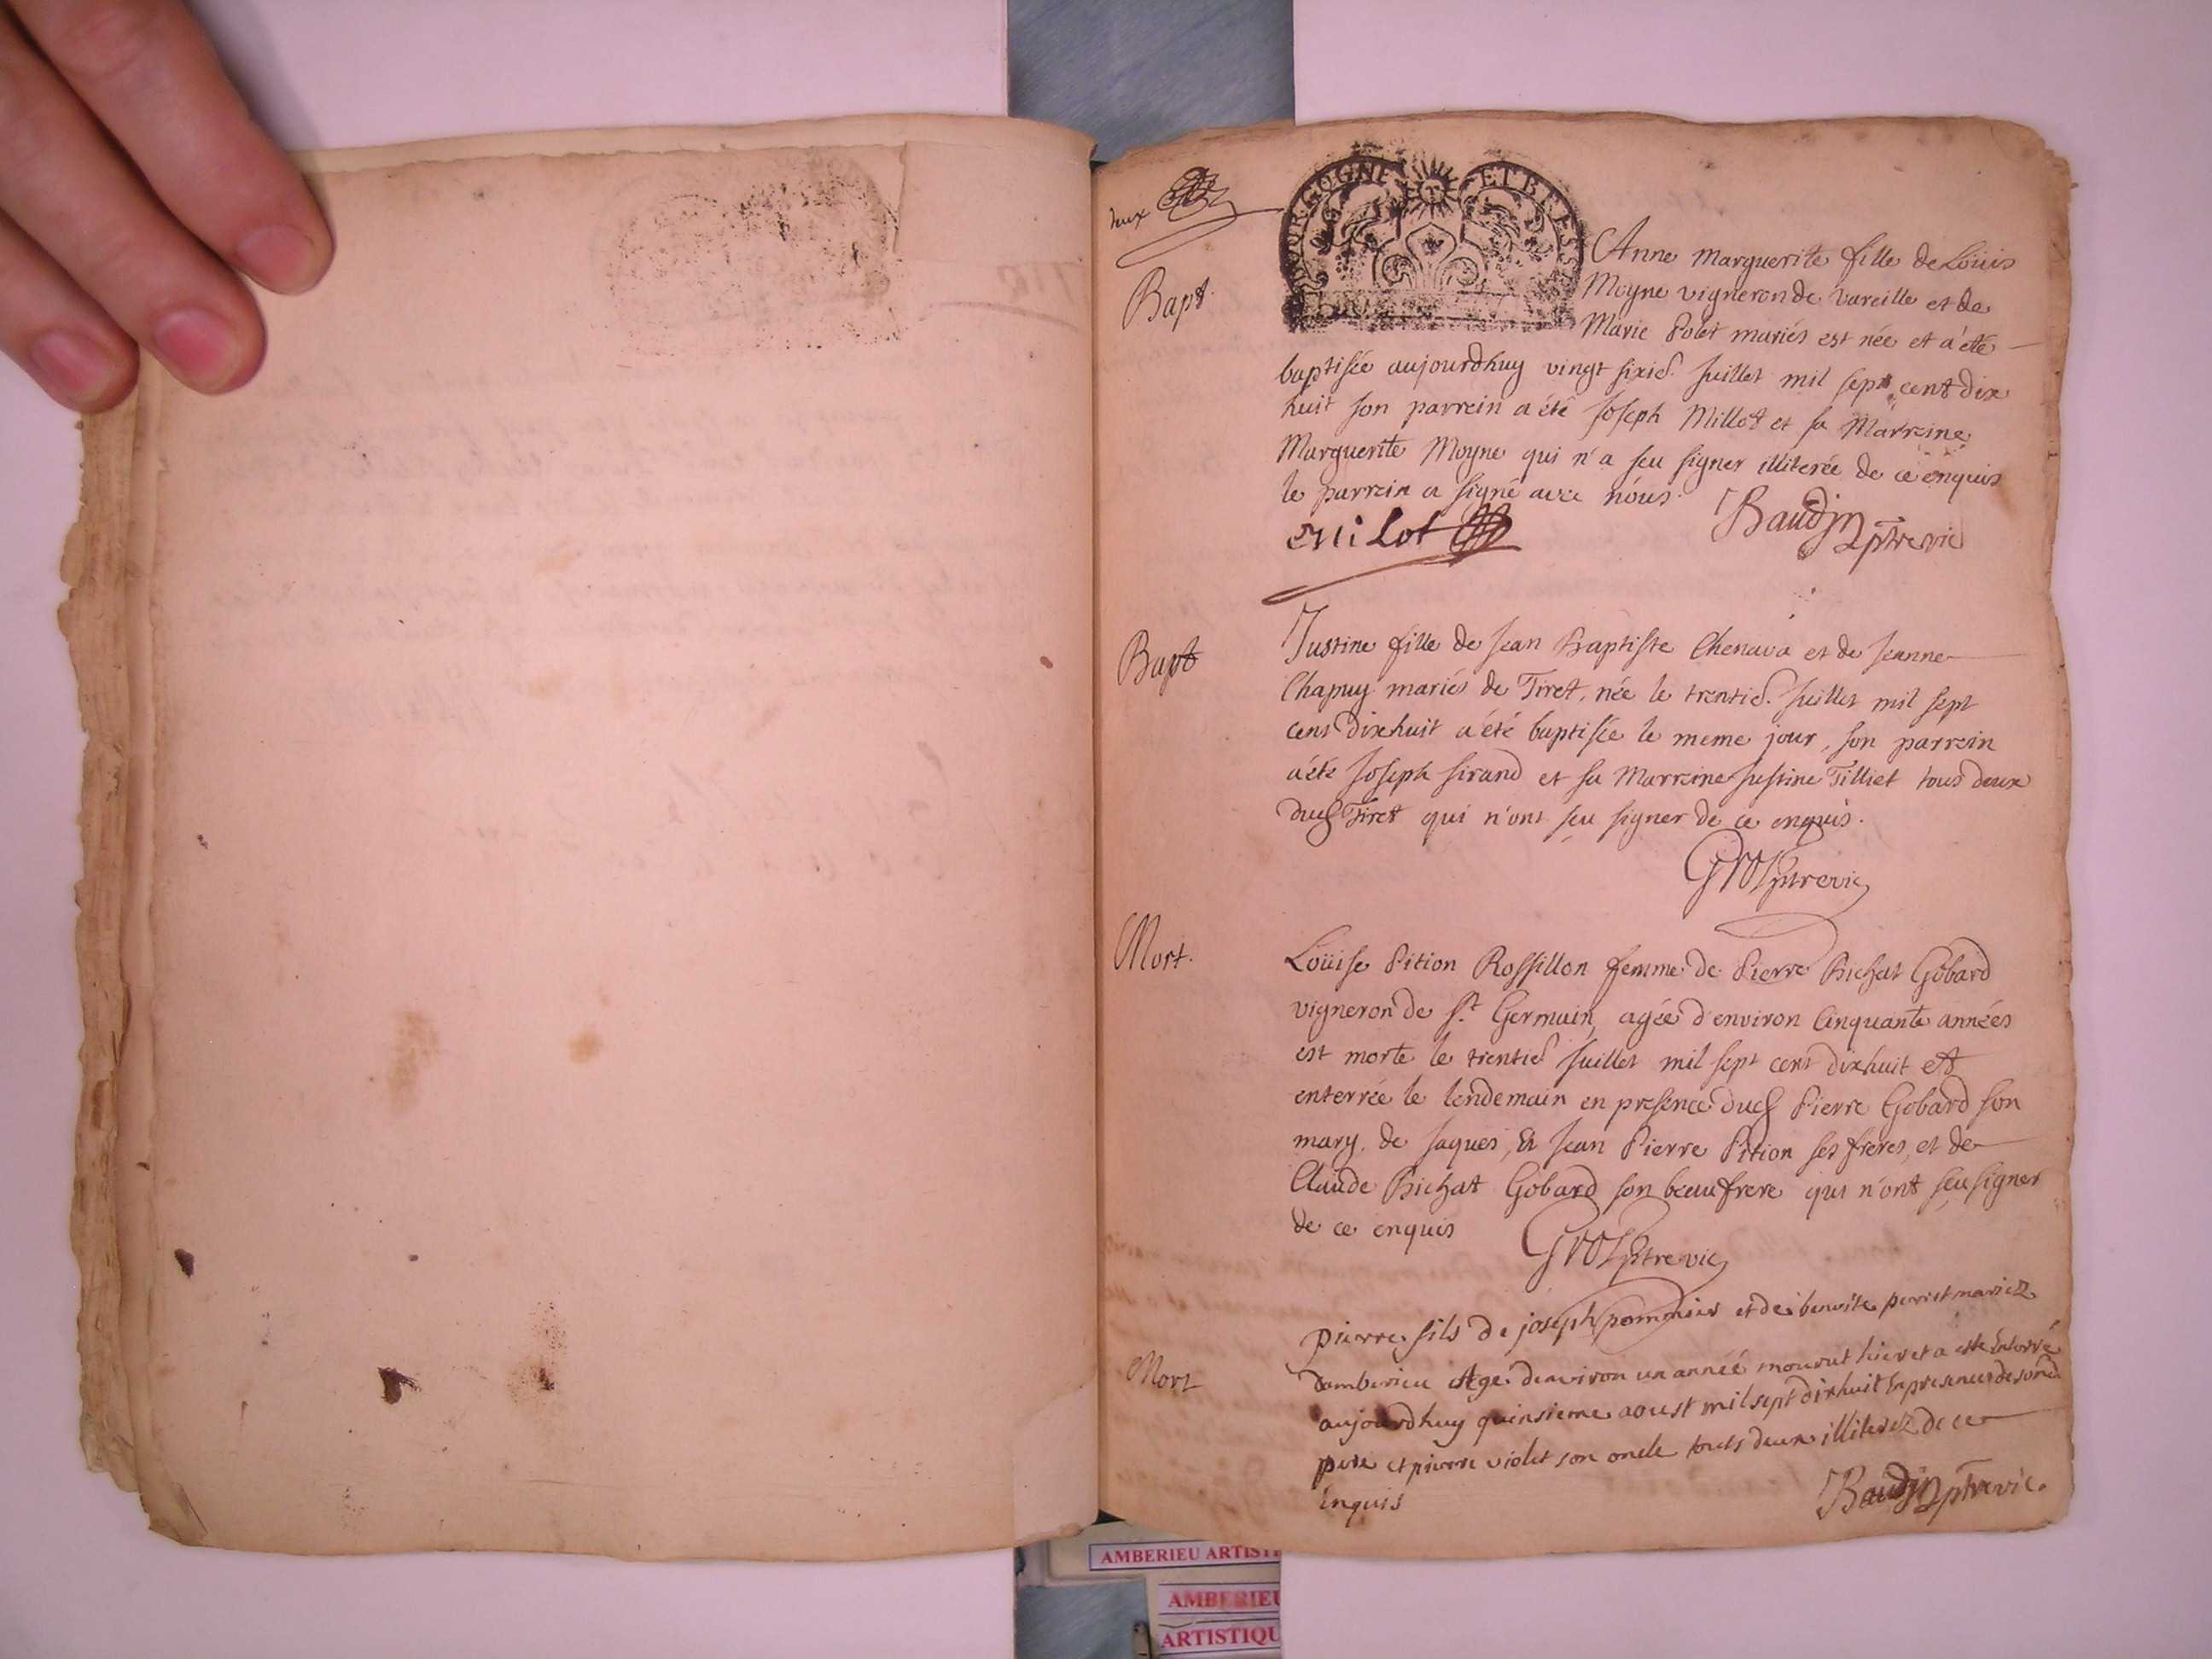 deux
BOURGOGNE ET BRESSE
Bapt.
Anne Marguerite fille de Loüis
Moyne vigneron de Vareille et de
Marie Polet mariés est née et a été
baptisée aujourdhuy vingt sixie. Juillet mil sept cent dix
huit son parrein a été Joseph Millot et sa Marreine
Marguerite Moyne qui n'a seu signer illiterée de ce enquis
le parrein a signé avec nous.
Milot
Baudin ptre vic
Bapt
Justine fille de Jean Baptiste Chenava et de Jeanne
Chapuy mariés de Tiret, née le trentie. Juillet mil sept
cent dixhuit a été baptisée le meme jour, son parrein
a été Joseph Sirand et sa Marreine Justine Tilliet tous deux
dud Tiret qui n'ont seu signer de ce enquis.
Gros ptre vic
Mort.
Loüise Pition Rossillon femme de Pierre Bichat Gobard
vigneron de St. Germain, agée d'environ Cinquante années
est morte le trentie Juillet mil sept cent dixhuit et
enterrée le lendemain en presence dud Pierre Gobard son
mary, de Jaques, et Jean Pierre Pition ses freres, et de
Claude Bichat Gobard son beaufrere qui n'ont seu signer
de ce enquis
Gros ptre vic
Mort
pierre fils de joseph pommier et de benoite perret mariez
damberieu Agé denviron un année mourut hier et a esté Enterré
aujourdhuy quinsieme aoust mil sept dixhuit En presence de sond
pere et pierre violet son oncle touts deux illiterez de ce
Enquis
Baudin ptre vic.
AMBERIEU ARTISTI
AMBERIEU
ARTISTIQU